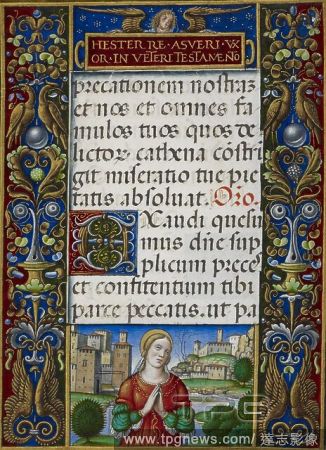 HESTER·RE·ASVERI·VX
OR·IN·VETERI TESTAMEÑO
precationem nostraz
et nos et omnes fa
mulos tuos quos de
lictor cathena cõstri
git miseratio tue pie
tatis absoluat. Oro.
Exaudi quesu
mus dñe sup
plicum prece
et confitentium tibi
parce peccatis. ut pa
TPG
www.tpgnews.com/達志影像